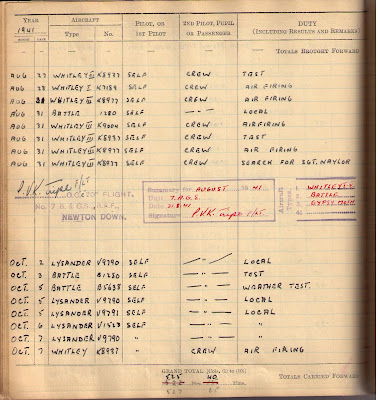 YEAR AIRCRAFT PILOT, OR 2ND PILOT, PUPIL DUTY
1941 1ST PILOT OR PASSENGER (INCLUDING RESULTS AND REMARKS)
MONTH DATE Type No.
— — — — TOTALS BROUGHT FORWARD
AUG 27 WHITLEY III K8937 SELF CREW TEST
AUG 28 WHITLEY I K7189 SELF CREW AIR FIRING
AUG 31 WHITLEY III K8937 SELF CREW AIR FIRING
AUG 31 BATTLE 1280 SELF — " — LOCAL
AUG 31 WHITLEY III K9004 SELF CREW AIRFIRING
AUG 31 WHITLEY III K8937 SELF CREW TEST
AUG 31 WHITLEY III K8937 SELF CREW AIR FIRING
AUG 31 WHITLEY III K8937 SELF CREW SEARCH FOR SGT. NAYLOR
F/LT
FLIGHT,
No. 7. B. & G.S., R.A.F.,
NEWTON DOWN.
Summary for AUGUST 1941
Unit 7. A.G.S.
Date 31.8.41
Signature F/LT
Aircraft Types
1. WHITLEY
2. BATTLE
3. GYPSY MOTH
4.
OCT. 2 LYSANDER V9790 SELF — " — LOCAL
OCT. 3 BATTLE B1280 SELF — " — TEST
OCT. 5 BATTLE B5638 SELF — " — WEATHER TEST.
OCT. 5 LYSANDER V9790 SELF — " — LOCAL
OCT. 5 LYSANDER V9791 SELF — " — LOCAL
OCT. 6 LYSANDER SELF — " — "
OCT. 7 LYSANDER V9790 " — " — "
OCT. 7 WHITLEY K8937 " CREW AIR FIRING
GRAND TOTAL [Cols. (1) to (10)] TOTALS CARRIED FORWARD
525 Hrs. 40 Mins.